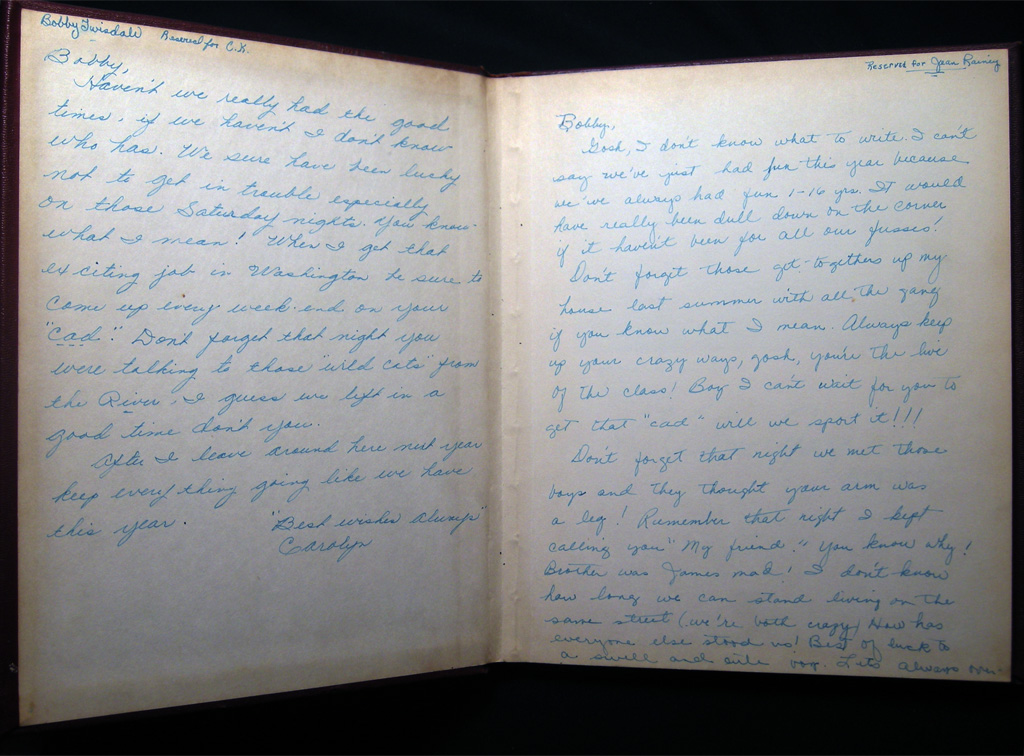 Bobby Twisdale Reserved for C.K.
Bobby,
Haven't we really had the good
times, if we haven't I don't know
who has. We sure have been lucky
not to get in trouble especially
on those Saturday nights. You know
what I mean! When I get that
exciting job in Washington be sure to
come up every week-end on your
"Cad". Don't forget that night you
were talking to those "wild cats" from
the River. I guess we left in a
good time don't you.
After I leave around here next year
keep every thing going like we have
this year.
"Best wishes always"
Carolyn
Reserved for Jean Rainey
Bobby,
Gosh, I don't know what to write. I can't
say we've just had fun this year because
we've always had fun 1-16 yrs. It would
have really been dull down on the corner
if it haven't been for all our fusses!
Don't forget those get-togethers up my
house last summer with all the gang
if you know what I mean. Always keep
up your crazy ways, gosh, you're the live
of the class! Boy I can't wait for you to
get that "cad" will we sport it!!!
Don't forget that night we met those
boys and they thought your arm was
a leg! Remember that night I kept
calling you "My friend." You know why!
Brother was James mad! I don't know
how long we can stand living on the
same street (we're both crazy) How has
everyone else stood us! Best of luck to
a swell and cute boy. Lets always